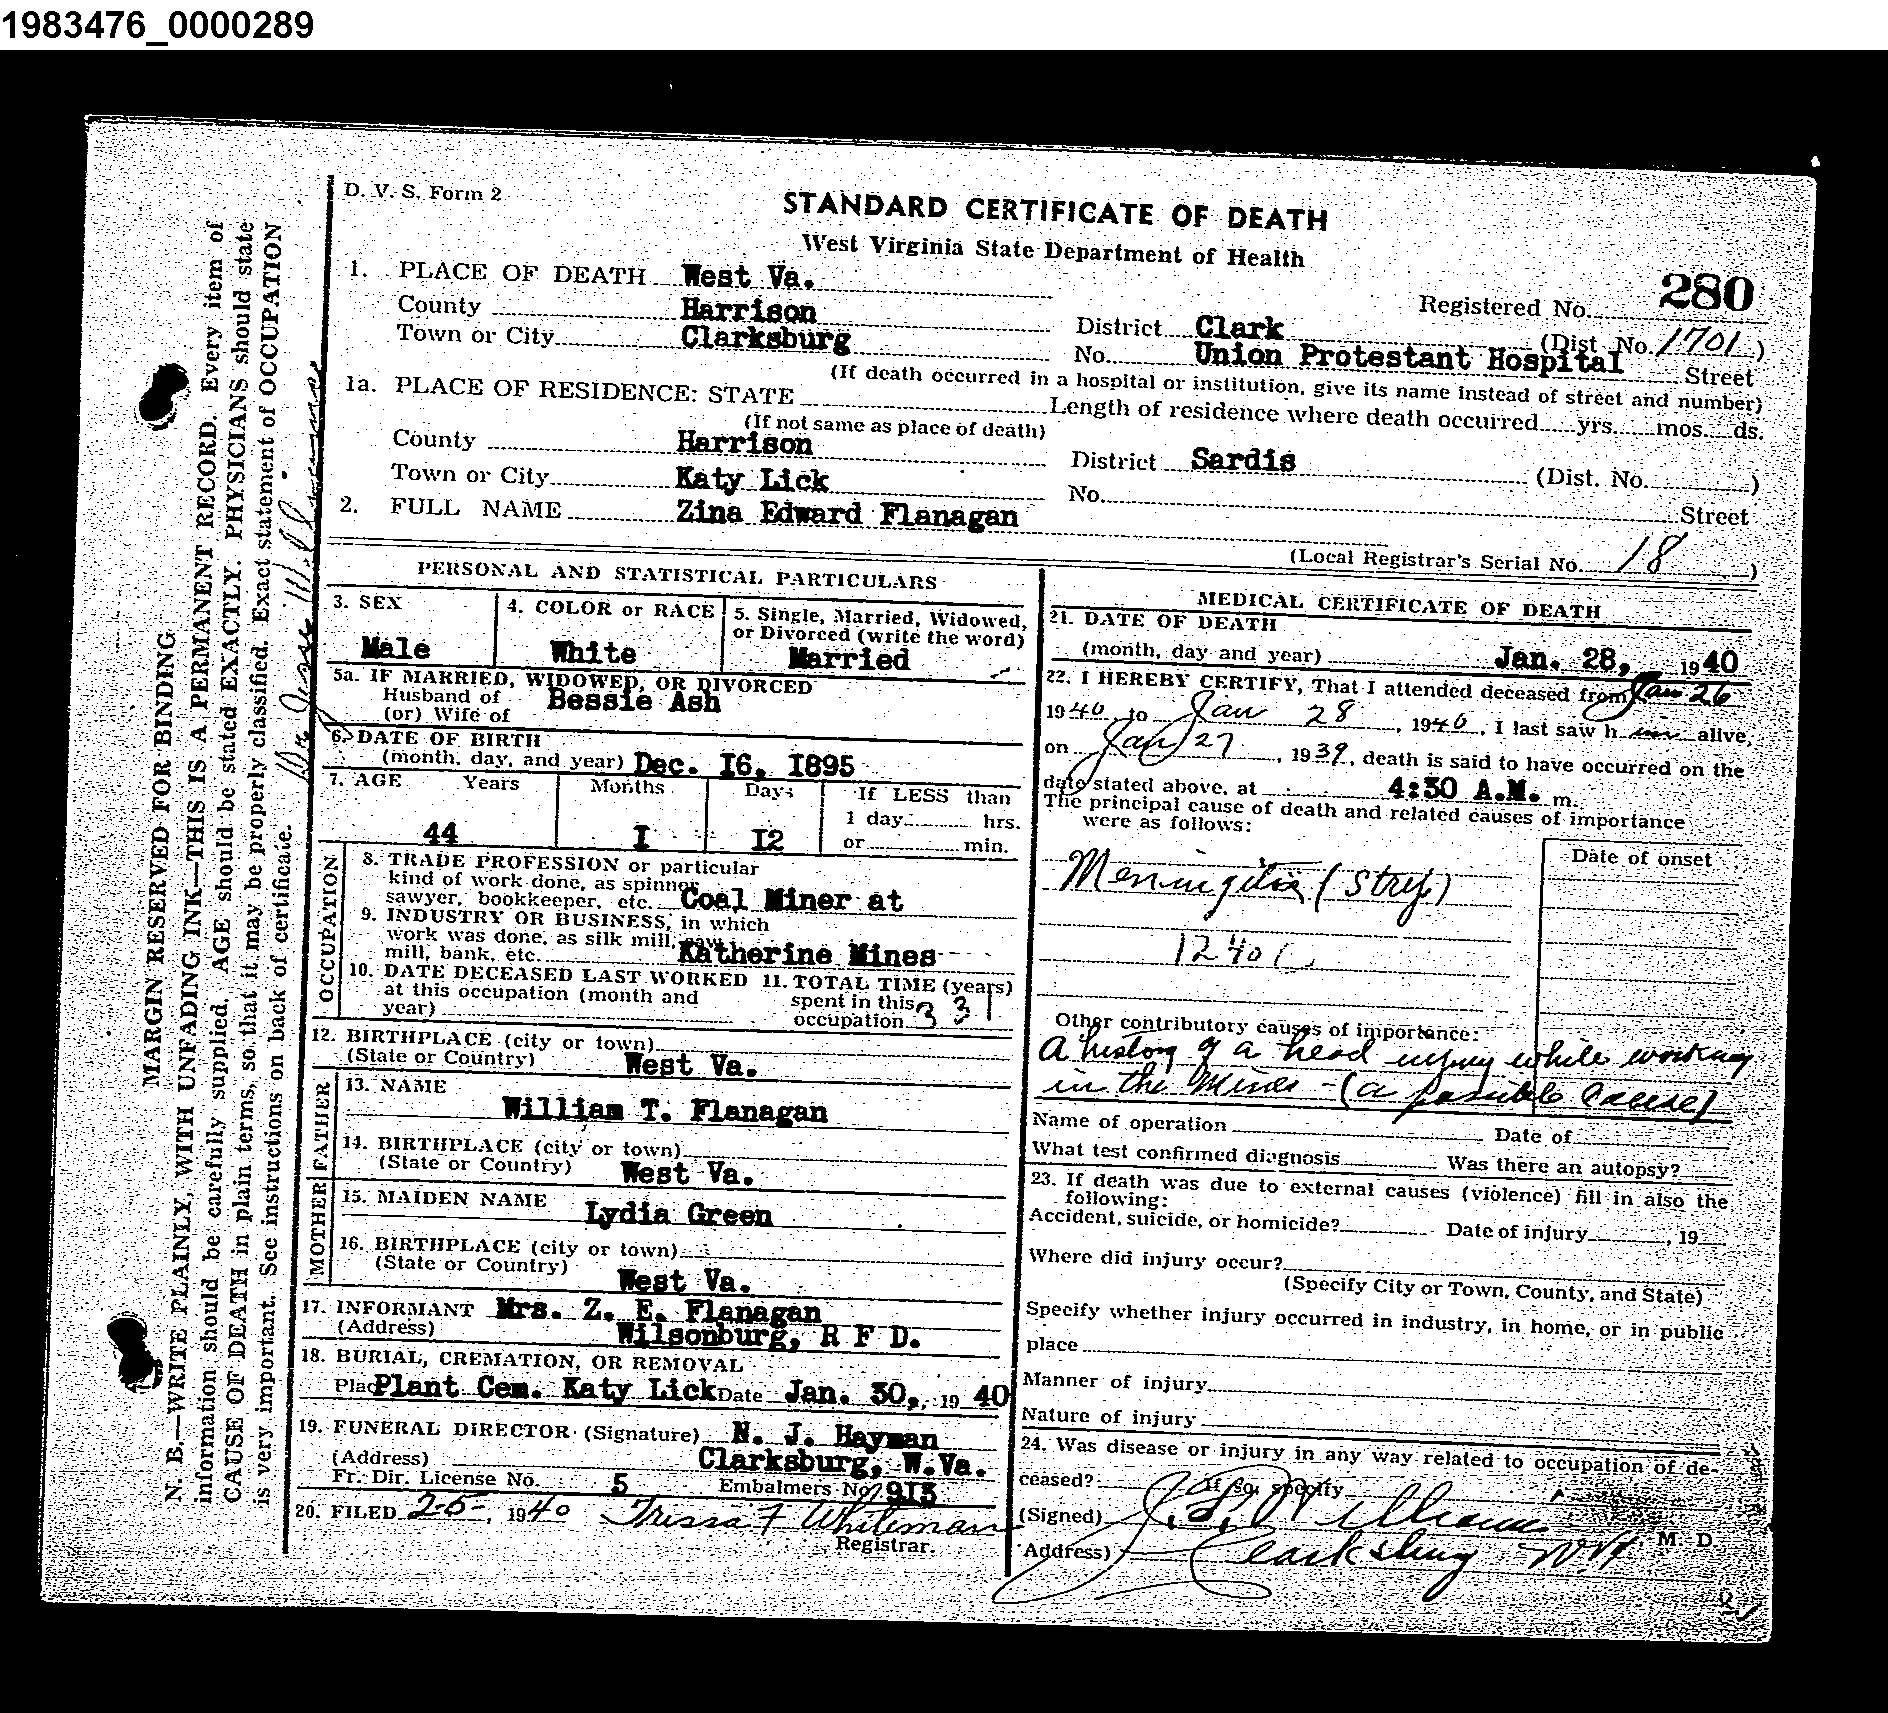 1983476_0000289
D. V. S. Form 2
STANDARD CERTIFICATE OF DEATH
West Virginia State Department of Health
280
1. PLACE OF DEATH West Va.
Registered No.
County Harrison
District Clark (Dist. No. 1701)
Town or City Clarksburg
No. Union Protestant Hospital Street
(If death occurred in a hospital or institution, give its name instead of street and number)
1a. PLACE OF RESIDENCE: STATE
Length of residence where death occurred yrs. mos. ds.
(If not same as place of death)
County Harrison
District Sardis (Dist. No. )
Town or City Katy Lick
No. Street
2. FULL NAME Zina Edward Flanagan
(Local Registrar's Serial No. 18 )
PERSONAL AND STATISTICAL PARTICULARS
3. SEX
Male
4. COLOR or RACE
White
5. Single, Married, Widowed,
or Divorced (write the word)
Married
5a. IF MARRIED, WIDOWED, OR DIVORCED
Husband of Bessie Ash
(or) Wife of
6. DATE OF BIRTH
(month, day, and year) Dec. I6, I895
7. AGE Years Months Days
44 I I2
If LESS than
1 day hrs.
or min.
OCCUPATION
8. TRADE PROFESSION or particular
kind of work done, as spinner
sawyer, bookkeeper, etc. Coal Miner at
9. INDUSTRY OR BUSINESS, in which
work was done, as silk mill, saw
mill, bank, etc. Katherine Mines
10. DATE DECEASED LAST WORKED
at this occupation (month and
year)
11. TOTAL TIME (years)
spent in this
occupation
12. BIRTHPLACE (city or town)
(State or Country) West Va.
FATHER
13. NAME
William T. Flanagan
14. BIRTHPLACE (city or town)
(State or Country) West Va.
MOTHER
15. MAIDEN NAME
Lydia Green
16. BIRTHPLACE (city or town)
(State or Country)
West Va.
17. INFORMANT Mrs. Z. E. Flanagan
(Address) Wilsonburg, R F D.
18. BURIAL, CREMATION, OR REMOVAL
Plac Plant Cem. Katy Lick Date Jan. 30, 1940
19. FUNERAL DIRECTOR (Signature) N. J. Hayman
(Address) Clarksburg, W.Va.
Fr. Dir. License No. 5 Embalmers No. 913
20. FILED 2-5-, 1940 Trissa F Whiteman
Registrar.
MEDICAL CERTIFICATE OF DEATH
21. DATE OF DEATH
(month, day and year) Jan. 28, 1940
22. I HEREBY CERTIFY, That I attended deceased from Jan 26
1940 to Jan 28, 1940, I last saw him alive,
on Jan 27, 1939, death is said to have occurred on the
date stated above, at 4:30 A.M. m.
The principal cause of death and related causes of importance
were as follows:
Date of onset
Meningitis (Strep)
Other contributory causes of importance:
A history of a head injury while working
in the Mines - (a possible Cause)
Name of operation Date of
What test confirmed diagnosis Was there an autopsy?
23. If death was due to external causes (violence) fill in also the
following:
Accident, suicide, or homicide? Date of injury , 19
Where did injury occur?
(Specify City or Town, County, and State)
Specify whether injury occurred in industry, in home, or in public
place
Manner of injury
Nature of injury
24. Was disease or injury in any way related to occupation of de-
ceased? If so, specify
(Signed) Williams M. D.
Address) Clarksburg W.Va
MARGIN RESERVED FOR BINDING
N. B.—WRITE PLAINLY, WITH UNFADING INK—THIS IS A PERMANENT RECORD. Every item of
information should be carefully supplied. AGE should be stated EXACTLY. PHYSICIANS should state
CAUSE OF DEATH in plain terms, so that it may be properly classified. Exact statement of OCCUPATION
is very important. See instructions on back of certificate.